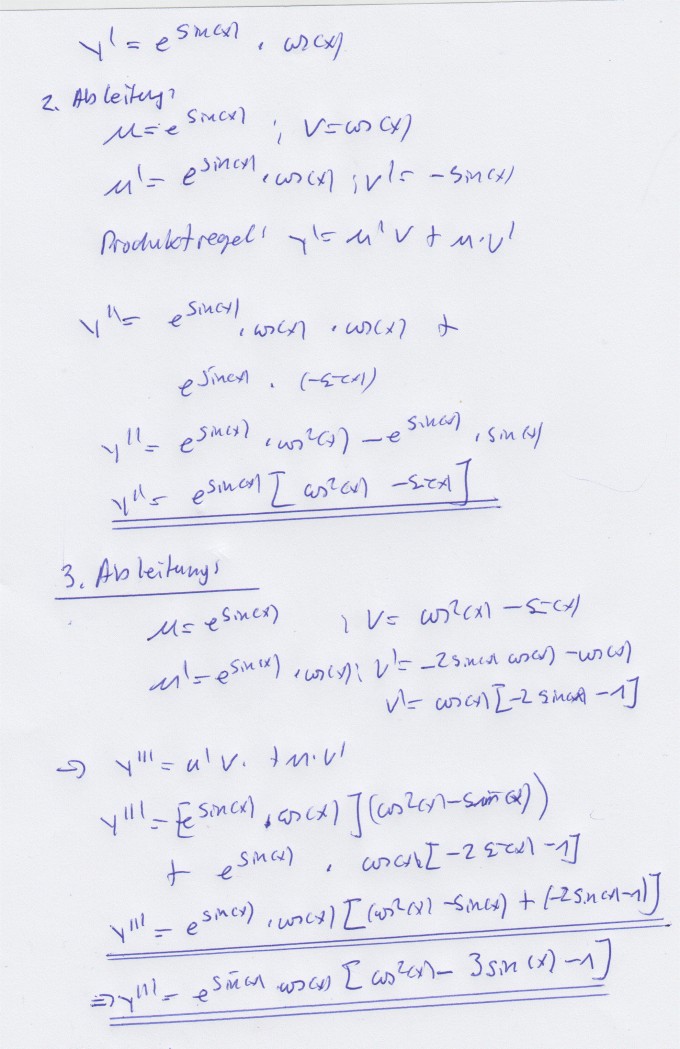 y' = e^sin(x) · cos(x)
2. Ableitung:
u = e^sin(x) ; v = cos(x)
u' = e^sin(x) · cos(x) ; v' = -sin(x)
Produktregel: y' = u' v + u · v'
y'' = e^sin(x) · cos(x) · cos(x) +
e^sin(x) · (-sin(x))
y'' = e^sin(x) · cos²(x) - e^sin(x) · sin(x)
y'' = e^sin(x) [ cos²(x) - sin(x) ]
3. Ableitung:
u = e^sin(x) ; v = cos²(x) - sin(x)
u' = e^sin(x) · cos(x) ; v' = -2 sin(x) cos(x) - cos(x)
v' = cos(x) [-2 sin(x) - 1]
⇒ y''' = u' v. + u · v'
y''' = [e^sin(x) · cos(x)] (cos²(x) - sin(x))
+ e^sin(x) · cos(x) [-2 sin(x) - 1]
y''' = e^sin(x) · cos(x) [(cos²(x) - sin(x) + (-2 sin(x) - 1)]
⇒ y''' = e^sin(x) cos(x) [ cos²(x) - 3 sin(x) - 1 ]